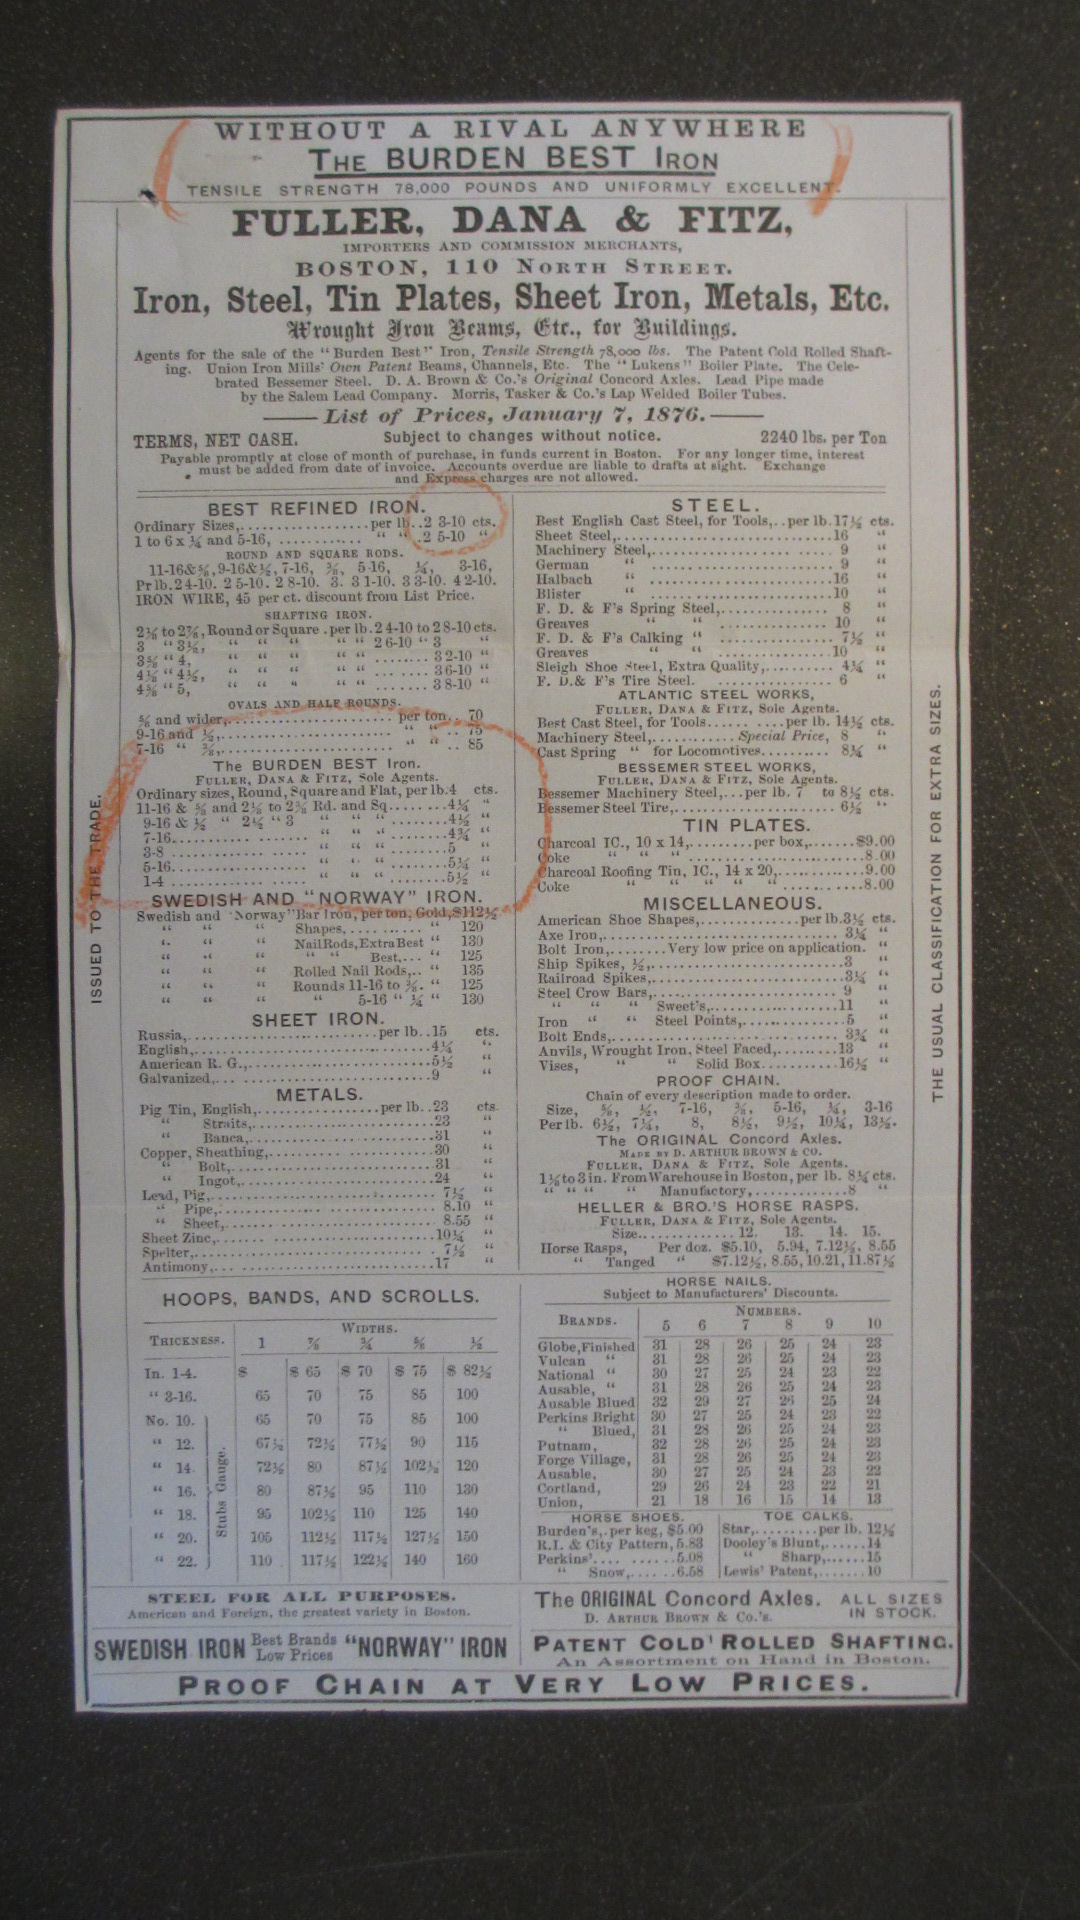 WITHOUT A RIVAL ANYWHERE
THE BURDEN BEST IRON
TENSILE STRENGTH 78,000 POUNDS AND UNIFORMLY EXCELLENT.
FULLER, DANA & FITZ,
IMPORTERS AND COMMISSION MERCHANTS,
BOSTON, 110 NORTH STREET.
Iron, Steel, Tin Plates, Sheet Iron, Metals, Etc.
Wrought Iron Beams, Etc., for Buildings.
Agents for the sale of the "Burden Best" Iron, Tensile Strength 78,000 lbs. The Patent Cold Rolled Shaft-
ing. Union Iron Mills' Own Patent Beams, Channels, Etc. The "Lukens" Boiler Plate. The Cele-
brated Bessemer Steel. D. A. Brown & Co.'s Original Concord Axles. Lead Pipe made
by the Salem Lead Company. Morris, Tasker & Co.'s Lap Welded Boiler Tubes.
List of Prices, January 7, 1876.
TERMS, NET CASH. Subject to changes without notice. 2240 lbs. per Ton
Payable promptly at close of month of purchase, in funds current in Boston. For any longer time, interest
must be added from date of invoice. Accounts overdue are liable to drafts at sight. Exchange
and Express charges are not allowed.
ISSUED TO THE TRADE.
BEST REFINED IRON.
Ordinary Sizes,..................per lb..2 3-10 cts.
1 to 6 x ¼ and 5-16, .......... " " .2 5-10 "
ROUND AND SQUARE RODS.
11-16&⅝, 9-16&½, 7-16, ⅜, 5-16, ¼, 3-16,
Pr lb. 2 4-10. 2 5-10. 2 8-10. 3. 3 1-10. 3 3-10. 4 2-10.
IRON WIRE, 45 per ct. discount from List Price.
SHAFTING IRON.
2⅛ to 2⅞, Round or Square . per lb. 2 4-10 to 2 8-10 cts.
3 " 3½, " " " " " 2 6-10 " 3 "
3⅝ " 4, " " " " " ........ 3 2-10 "
4⅛ " 4½, " " " " " ........ 3 6-10 "
4⅝ " 5, " " " " " ........ 3 8-10 "
OVALS AND HALF ROUNDS.
⅝ and wider,...................... per ton.. 70
9-16 and ½,....................... " " .. 75
7-16 " ⅜,....................... " " .. 85
The BURDEN BEST Iron.
FULLER, DANA & FITZ, Sole Agents.
Ordinary sizes, Round, Square and Flat, per lb.4 cts.
11-16 & ⅝ and 2⅛ to 2⅜ Rd. and Sq........4¼ "
9-16 & ½ " 2½ " 3 " " " ........4½ "
7-16.................... " " " ........4¾ "
3-8 .................... " " " ........5 "
5-16.................... " " " ........5¼ "
1-4 .................... " " " ........5½ "
SWEDISH AND "NORWAY" IRON.
Swedish and "Norway" Bar Iron, per ton, Gold, $112½
" " " Shapes,.......... " 120
" " " Nail Rods, Extra Best " 130
" " " " " Best,... " 125
" " " Rolled Nail Rods,.. " 135
" " " Rounds 11-16 to ⅜. " 125
" " " " 5-16 " ¼ " 130
SHEET IRON.
Russia,...........................per lb. .15 cts.
English,...............................4¼ "
American R. G.,.........................5½ "
Galvanized,... .........................9 "
METALS.
Pig Tin, English,...............per lb..23 cts.
" Straits,........................23 "
" Banca,........................31 "
Copper, Sheathing,......................30 "
" Bolt,...........................31 "
" Ingot,..........................24 "
Lead, Pig,..............................7½ "
" Pipe,............................8.10 "
" Sheet,...........................8.55 "
Sheet Zinc,.............................10¼ "
Spelter,................................7½ "
Antimony,...............................17 "
STEEL.
Best English Cast Steel, for Tools,..per lb. 17½ cts.
Sheet Steel,............................16 "
Machinery Steel,........................ 9 "
German " ........................ 9 "
Halbach " ........................16 "
Blister " ........................10 "
F. D. & F's Spring Steel,.............. 8 "
Greaves " " .............. 10 "
F. D. & F's Calking " .............. 7½ "
Greaves " " ..............10 "
Sleigh Shoe Steel, Extra Quality,......... 4¼ "
F. D. & F's Tire Steel. ................ 6 "
ATLANTIC STEEL WORKS,
FULLER, DANA & FITZ, Sole Agents.
Best Cast Steel, for Tools...........per lb. 14½ cts.
Machinery Steel,............Special Price, 8 "
Cast Spring " for Locomotives.......... 8¼ "
BESSEMER STEEL WORKS,
FULLER, DANA & FITZ, Sole Agents.
Bessemer Machinery Steel,...per lb. 7 to 8½ cts.
Bessemer Steel Tire,.................... 6½ "
TIN PLATES.
Charcoal IC., 10 x 14,.........per box,.......$9.00
Coke " " " ........................8.00
Charcoal Roofing Tin, IC., 14 x 20,............9.00
Coke " " " " " ...........8.00
MISCELLANEOUS.
American Shoe Shapes,.............per lb.3½ cts.
Axe Iron,...............................3¼ "
Bolt Iron,........Very low price on application.
Ship Spikes, ½,.........................3 "
Railroad Spikes,........................3¼ "
Steel Crow Bars,........................9 "
" " " Sweet's,..............11 "
Iron " " Steel Points,.............5 "
Bolt Ends,..............................3¾ "
Anvils, Wrought Iron, Steel Faced,..........13 "
Vises, " " Solid Box..........16½ "
PROOF CHAIN.
Chain of every description made to order.
Size, ⅝, ½, 7-16, ⅜, 5-16, ¼, 3-16
Per lb. 6½, 7¼, 8, 8½, 9½, 10¼, 13½.
The ORIGINAL Concord Axles.
MADE BY D. ARTHUR BROWN & CO.
FULLER, DANA & FITZ, Sole Agents.
1⅛ to 3 in. From Warehouse in Boston, per lb. 8¼ cts.
" " " " Manufactory,............8 "
HELLER & BRO.'S HORSE RASPS.
FULLER, DANA & FITZ, Sole Agents.
Size............. 12. 13. 14. 15.
Horse Rasps, Per doz. $5.10, 5.94, 7.12½, 8.55
" Tanged " $7.12½, 8.55, 10.21, 11.87½
THE USUAL CLASSIFICATION FOR EXTRA SIZES.
HOOPS, BANDS, AND SCROLLS.
THICKNESS. WIDTHS.
1 ⅞ ¾ ⅝ ½
In. 1-4. $ $ 65 $ 70 $ 75 $ 82½
" 3-16. 65 70 75 85 100
No. 10. 65 70 75 85 100
" 12. 67½ 72½ 77½ 90 115
" 14 72½ 80 87½ 102½ 120
" 16. 80 87½ 95 110 130
" 18. 95 102½ 110 125 140
" 20. 105 112½ 117½ 127½ 150
" 22. 110 117½ 122½ 140 160
Stubs Gauge.
HORSE NAILS.
Subject to Manufacturers' Discounts.
BRANDS. NUMBERS.
5 6 7 8 9 10
Globe, Finished 31 28 26 25 24 23
Vulcan " 31 28 26 25 24 23
National " 30 27 25 24 23 22
Ausable, " 31 28 26 25 24 23
Ausable Blued 32 29 27 26 25 24
Perkins Bright 30 27 25 24 23 22
" Blued, 31 28 26 25 24 23
Putnam, 32 28 26 25 24 23
Forge Village, 31 28 26 25 24 23
Ausable, 30 27 25 24 23 22
Cortland, 29 26 24 23 22 21
Union, 21 18 16 15 14 13
HORSE SHOES.
Burden's,. per keg, $5.00
R.I. & City Pattern, 5.83
Perkins'.... .......5.08
" Snow,......6.58
TOE CALKS.
Star,.........per lb. 12½
Dooley's Blunt,......14
" Sharp,......15
Lewis' Patent,.......10
STEEL FOR ALL PURPOSES.
American and Foreign, the greatest variety in Boston.
The ORIGINAL Concord Axles. ALL SIZES
D. ARTHUR BROWN & CO.'S. IN STOCK.
SWEDISH IRON Best Brands Low Prices "NORWAY" IRON
PATENT COLD ROLLED SHAFTING.
An Assortment on Hand in Boston.
PROOF CHAIN AT VERY LOW PRICES.